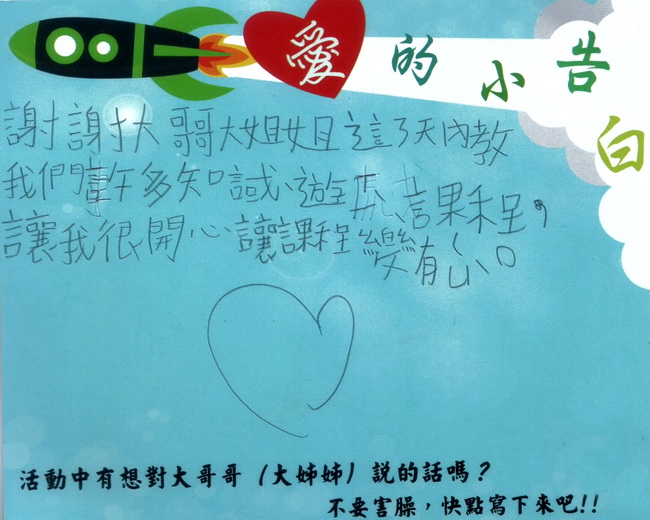 愛的小告白
謝謝大哥大姐姐這3天內教
我們許多知識、遊 課程,
讓我很開心讓課程變有
活動中有想對大哥哥（大姊姊）說的話嗎？
不要害臊，快點寫下來吧!!